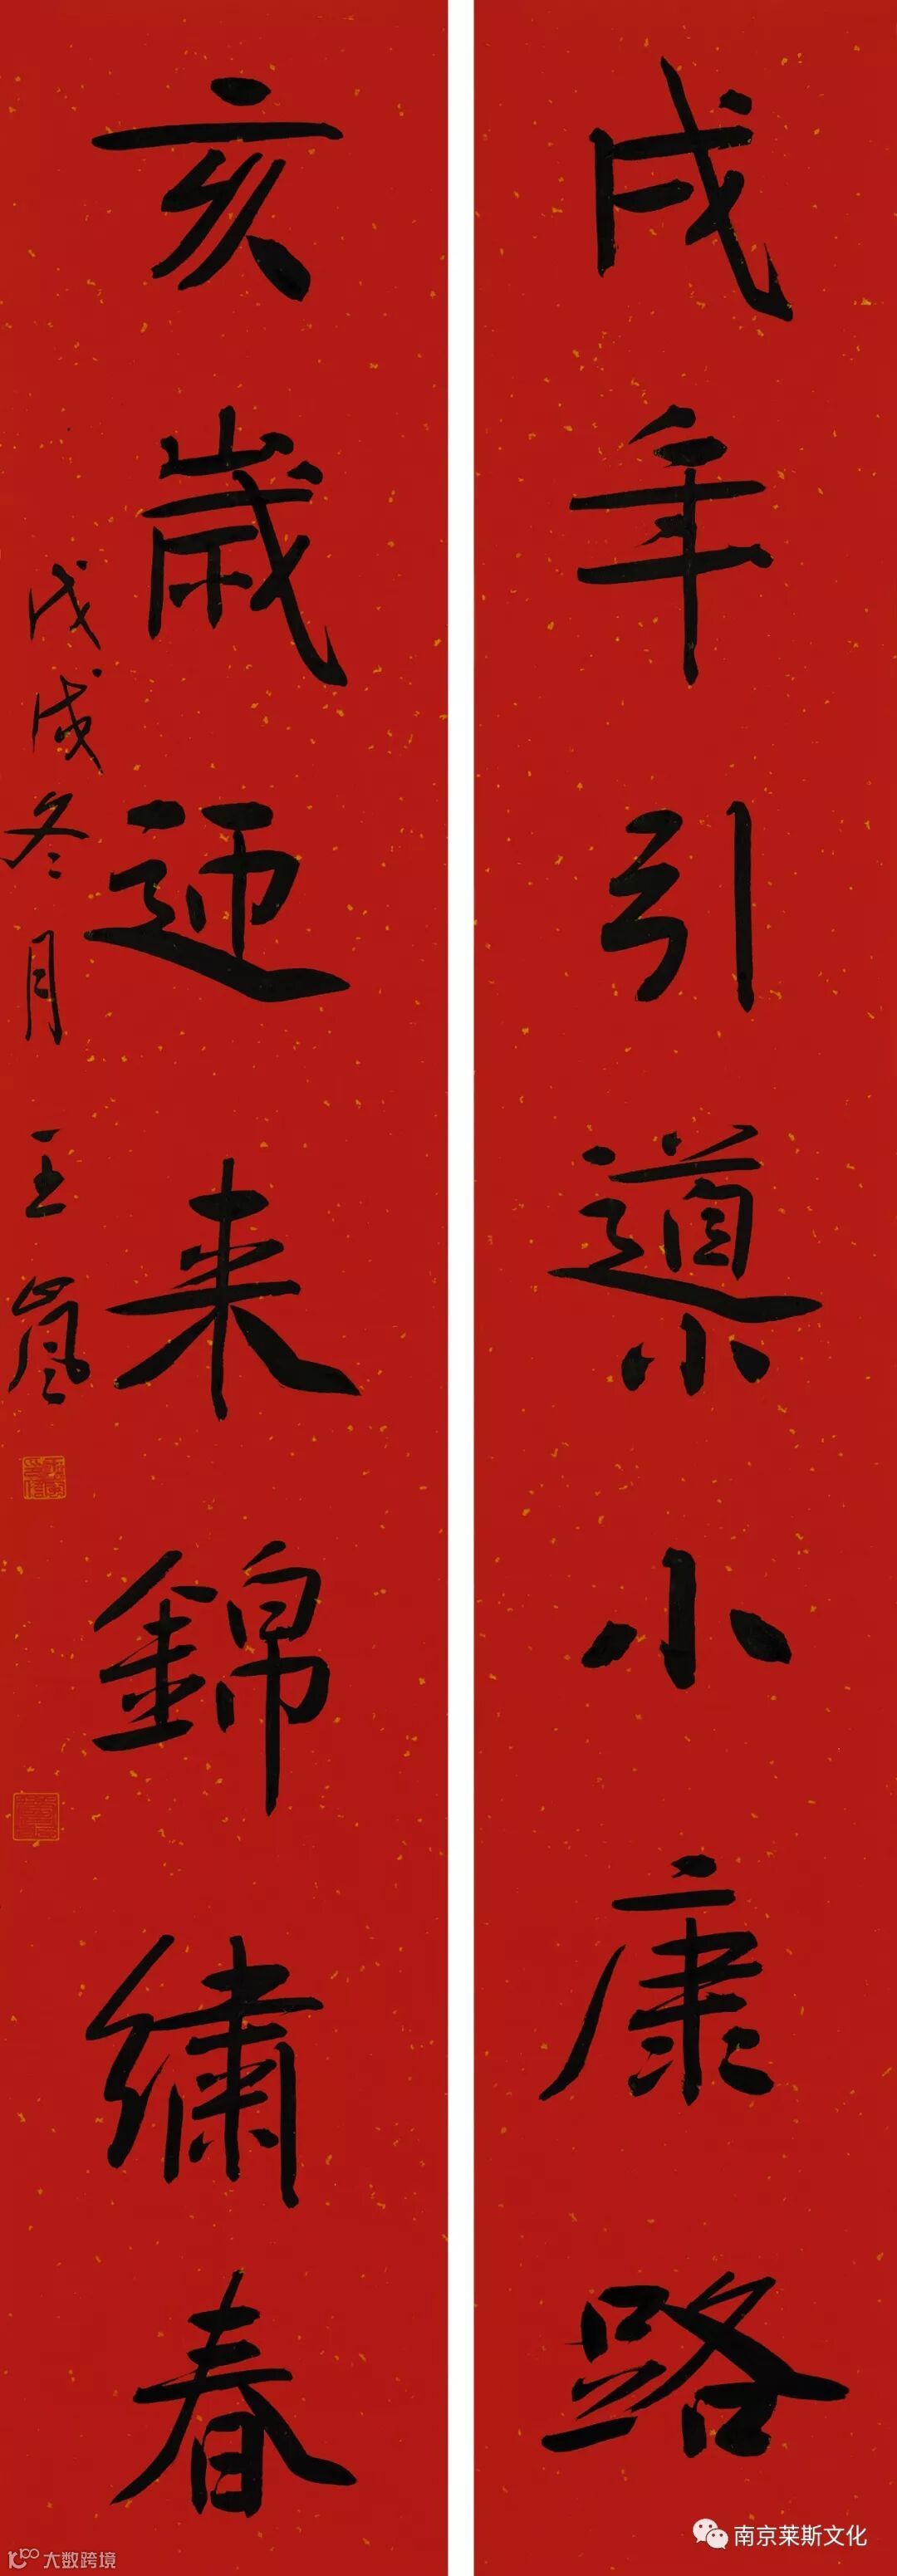 戌年引導小康路
亥歲迎来錦繡春
戊戌冬月 王嵐
南京莱斯文化
大数跨境